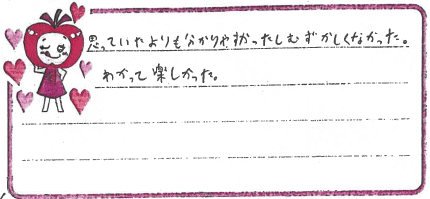 思っていたよりも分かりやすかったしむずかしくなかった。
わかって楽しかった。